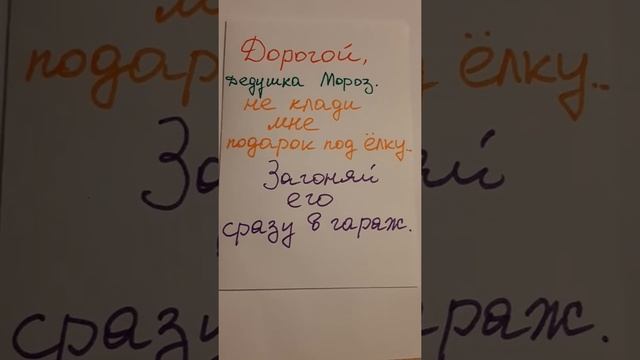 Дорогой,
Дедушка Мороз.
не клади
мне
подарок под ёлку..
Загоняй
его
сразу в гараж.